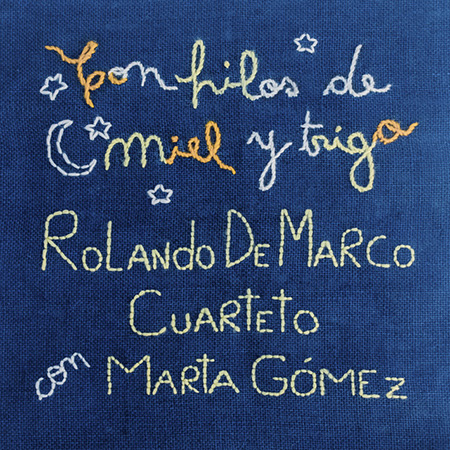 Con hilos de
miel y trigo
ROLANDO DE MARCO
CUARTETO
con MARTA GÓMEZ